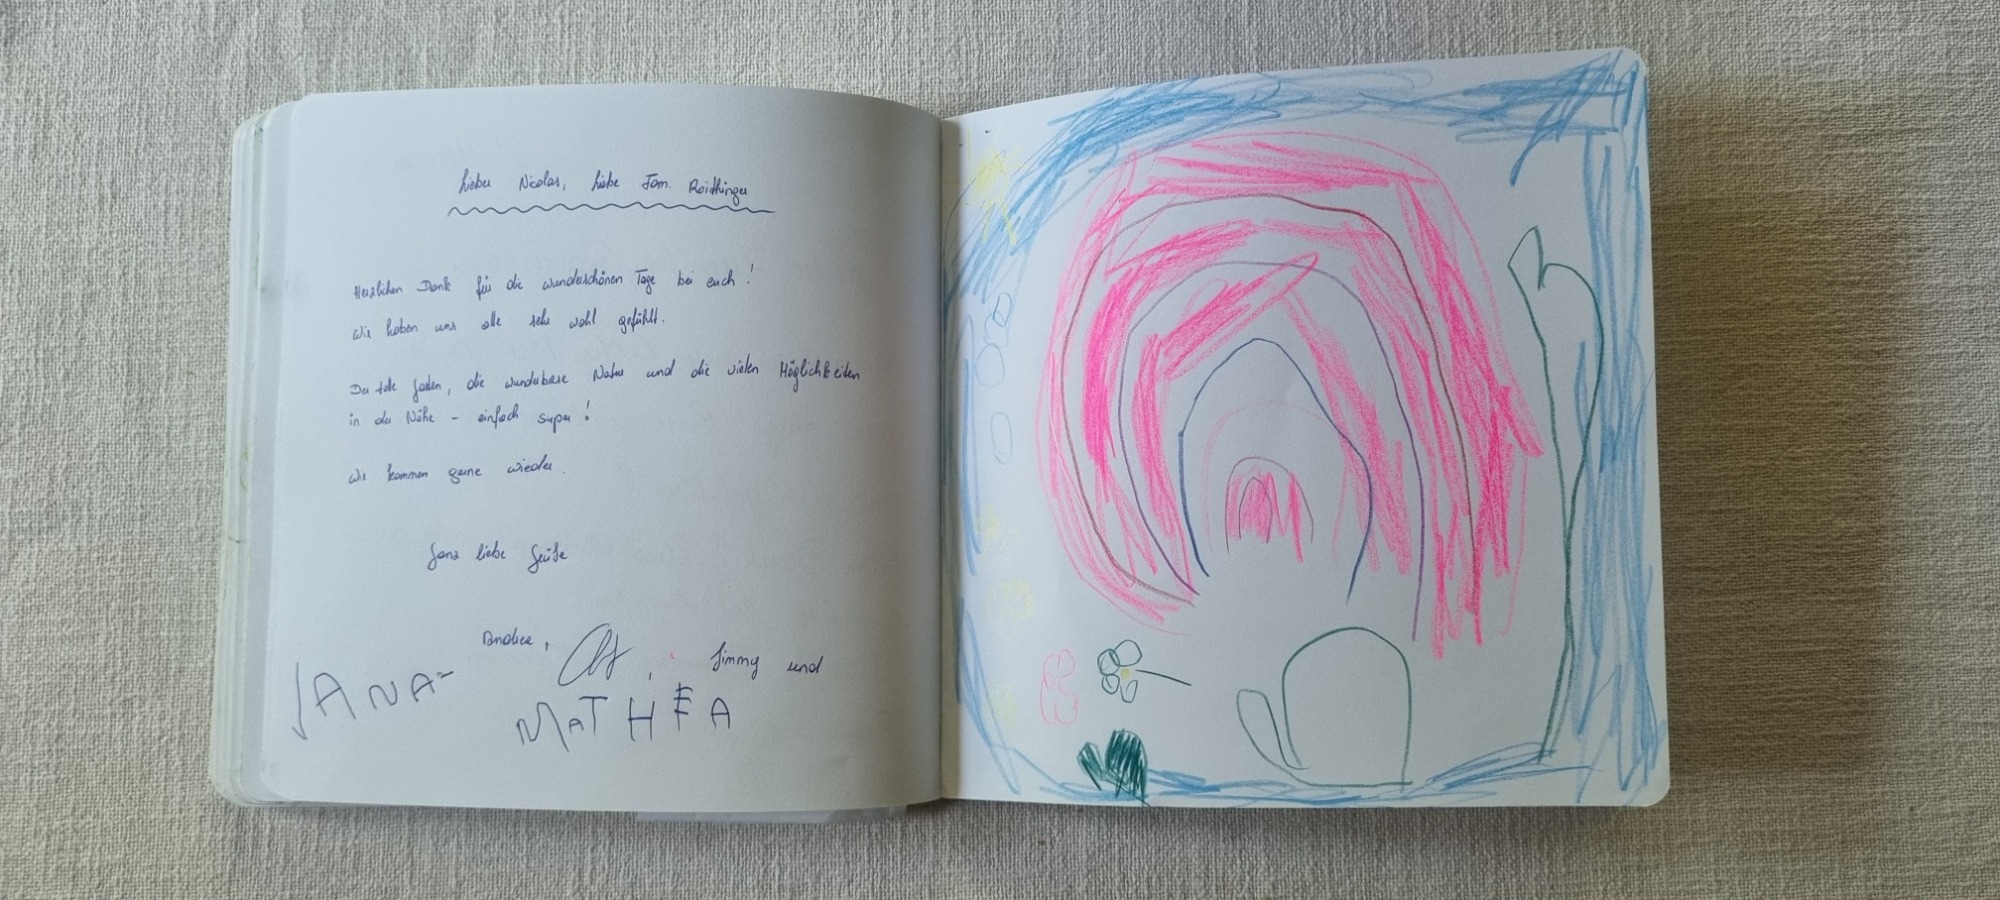 Lieber Nicolas, liebe Fam. Roithinger
Herzlichen Dank für die wunderschönen Tage bei euch!
Wir haben uns alle sehr wohl gefühlt.
Der tolle Garten, die wunderbare Natur und die vielen Möglichkeiten
in der Nähe - einfach super!
Wir kommen gerne wieder.
Ganz liebe Grüße
Andrea, , Jimmy und
JANA
MATHEA